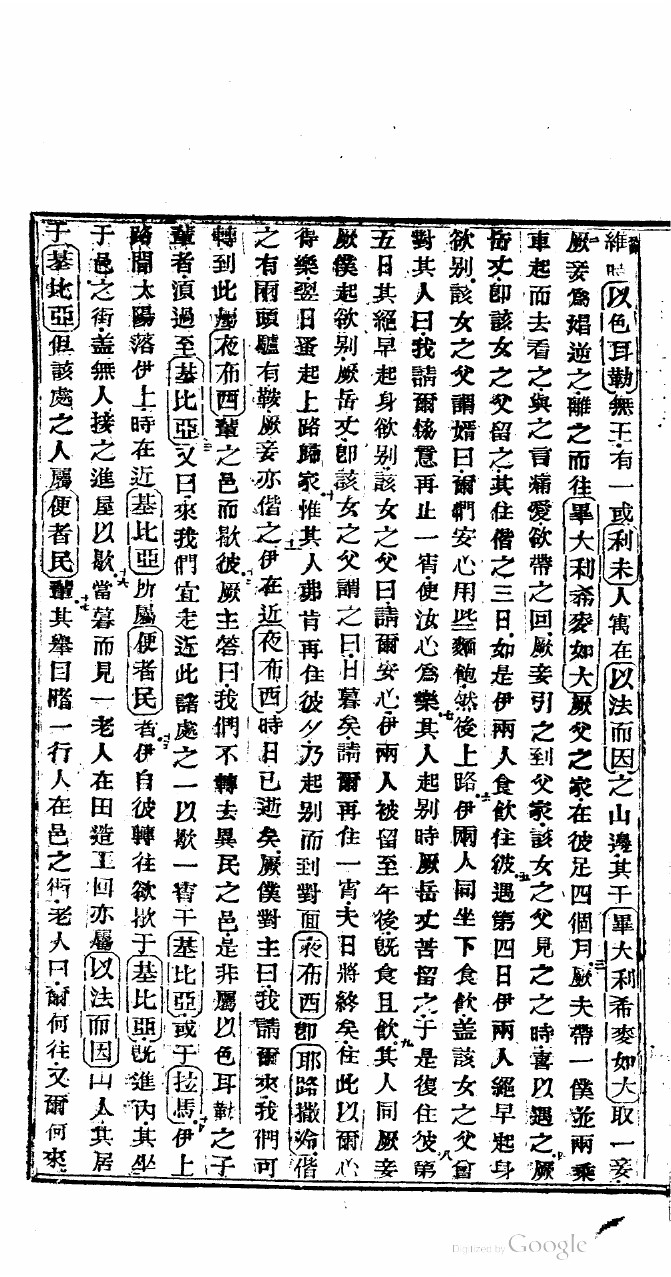 維時以色耳勒無王有一或利未人寓在以法而因之山邊其于畢大利希麥如大取一妾
厥妾爲娼逆之離之而往畢大利希麥如大厥父之家在彼足四個月厥夫帶一僕並兩乘
車起而去看之與之言痛愛欲帶之回厥妾引之到父家該女之父見之之時喜以遇之厥
岳丈卽該女之父留之其住偕之三日如是伊兩人食飲住彼遇第四日伊兩人絕早起身
欲别該女之父謂婿曰爾們安心用些麵飽然後上路伊兩人同坐下食飲蓋該女之父曾
對其人曰我請爾條意再止一宵使汝心爲樂其人起别時厥岳丈苦留之于是復住彼第
五日其絕早起身欲别該女之父曰請爾安心伊兩人被留至午後旣食且飲其人同厥妾
厥僕起欲别厥岳丈卽該女之父謂之曰日暮矣請爾再住一宵夫日將終矣住此以爾心
得樂翌日蚤起上路歸家惟其人弗肯再住彼夕乃起别而到對面夜布西卽耶路撒冷偕
之有兩頭驢有鞍厥妾亦偕之伊在近夜布西時日已逝矣厥僕對主曰我請爾來我們可
轉到此屬夜布西輩之邑而歇彼厥主答曰我們不轉去異民之邑是非屬以色耳勒之子
輩者湏過至基比亞又曰來我們宜走近此諸處之一以歇一宵于基比亞或于拉馬伊上
路間太陽落伊上時在近基比亞所屬便者民者伊自彼轉往欲歇于基比亞旣進內其坐
于邑之街盖無人接之進屋以歇當暮而見一老人在田造工回亦屬以法而因山人其居
于基比亞但該處之人屬便者民輩其舉目瞻一行人在邑之街老人曰爾何往又爾何來
Digitized by Google